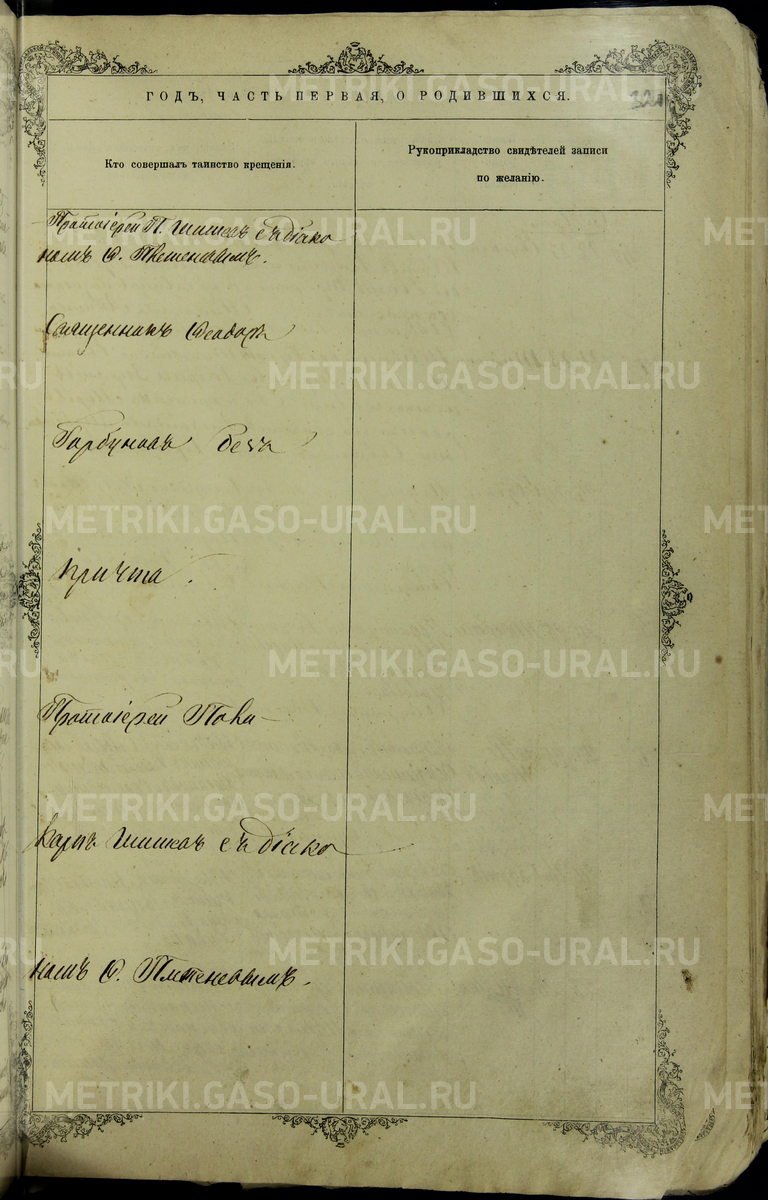 ГОДЪ, ЧАСТЬ ПЕРВАЯ, О РОДИВШИХСЯ.
Кто совершалъ таинство крещенія.
Рукоприкладство свидѣтелей записи
по желанію.
Протоіерей П. съ діако
номъ Ѳ.
Священникъ Ѳеодоръ
Горбуновъ безъ
причта.
Протоіерей Поли-
карпъ съ діако
номъ Ѳ.
METRIKI.GASO-URAL.RU